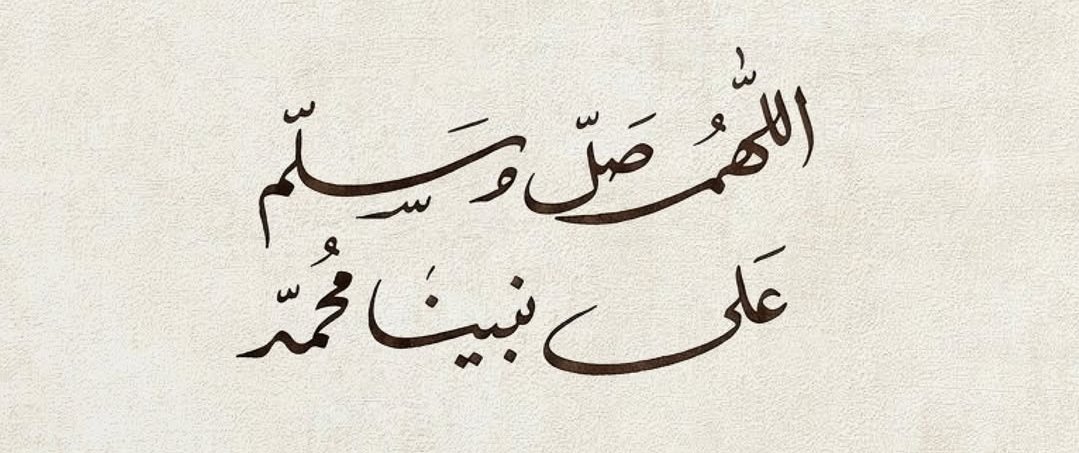 اللّٰهُمَّ صَلِّ وَسَلِّم
عَلى نبينَا محُمّد